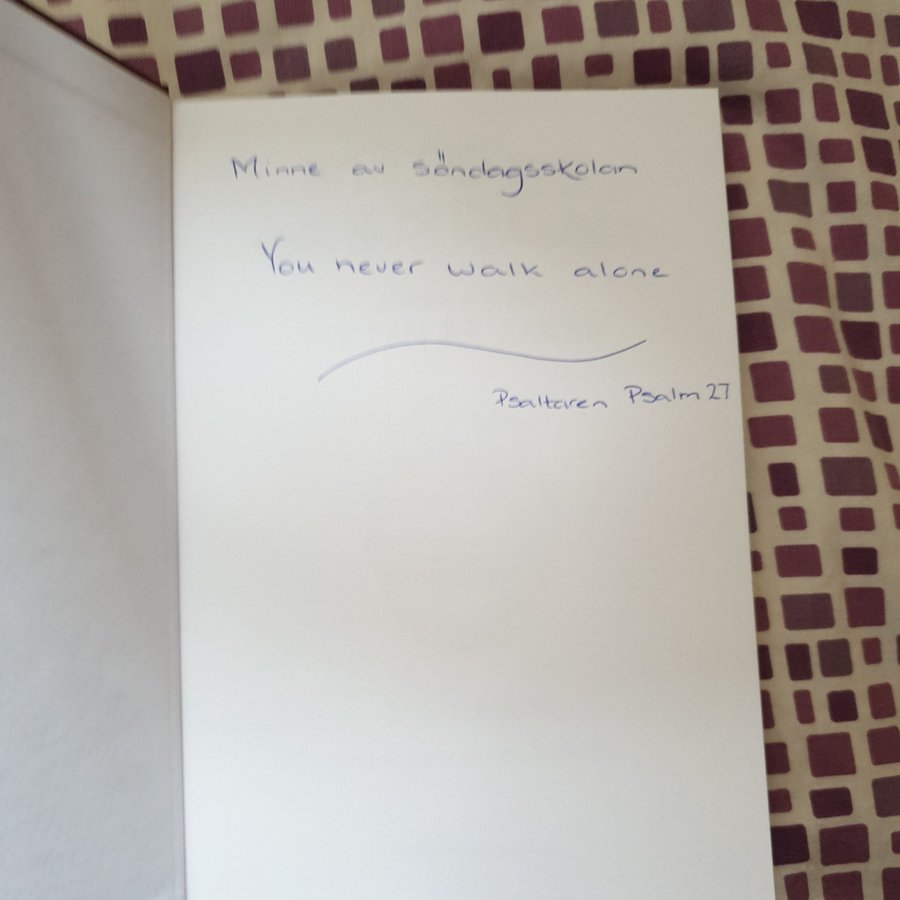 Minne av söndagsskolan
You never walk alone
Psaltaren Psalm 27